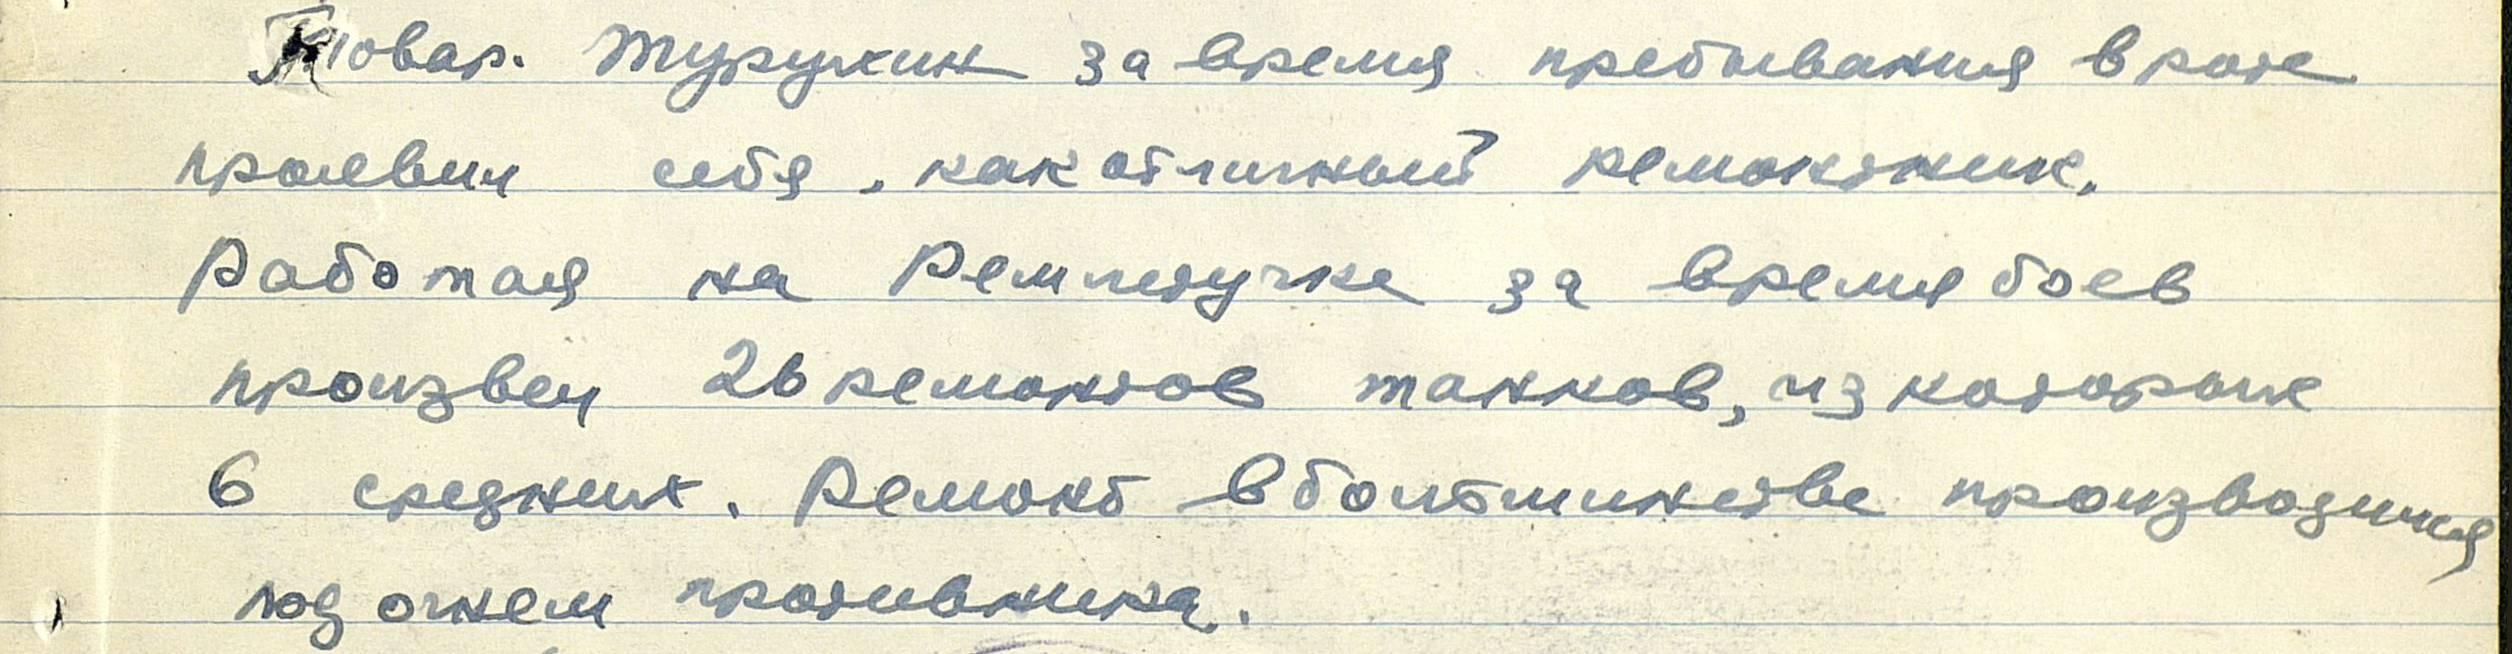 Товар. Турухин за время пребывания в роте
проявил себя, как отличный ремонтник.
Работая на Ремлетучке за время боев
произвел 26 ремонтов танков, из которых
6 средних. Ремонт в большинстве производился
под огнем противника.